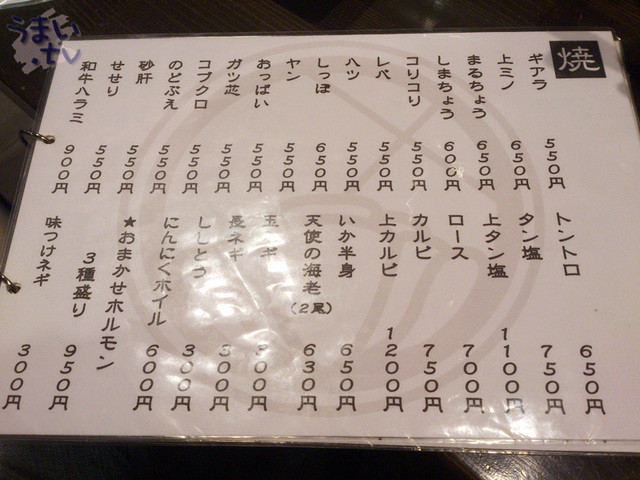 うまい.tv
焼
ギアラ 550円
上ミノ 650円
まるちょう 650円
しまちょう 600円
コリコリ 550円
レバ 550円
ハツ 550円
しっぽ 650円
ヤン 550円
おっぱい 550円
ガツ芯 550円
コブクロ 550円
のどぶえ 550円
砂肝 550円
せせり 550円
和牛ハラミ 900円
トントロ 650円
タン塩 750円
上タン塩 1100円
ロース 700円
カルビ 750円
上カルビ 1200円
いか半身 650円
天使の海老(2尾) 630円
玉ネギ 300円
長ネギ 300円
ししとう 300円
にんにくホイル 600円
★おまかせホルモン
3種盛り 950円
味つけネギ 300円